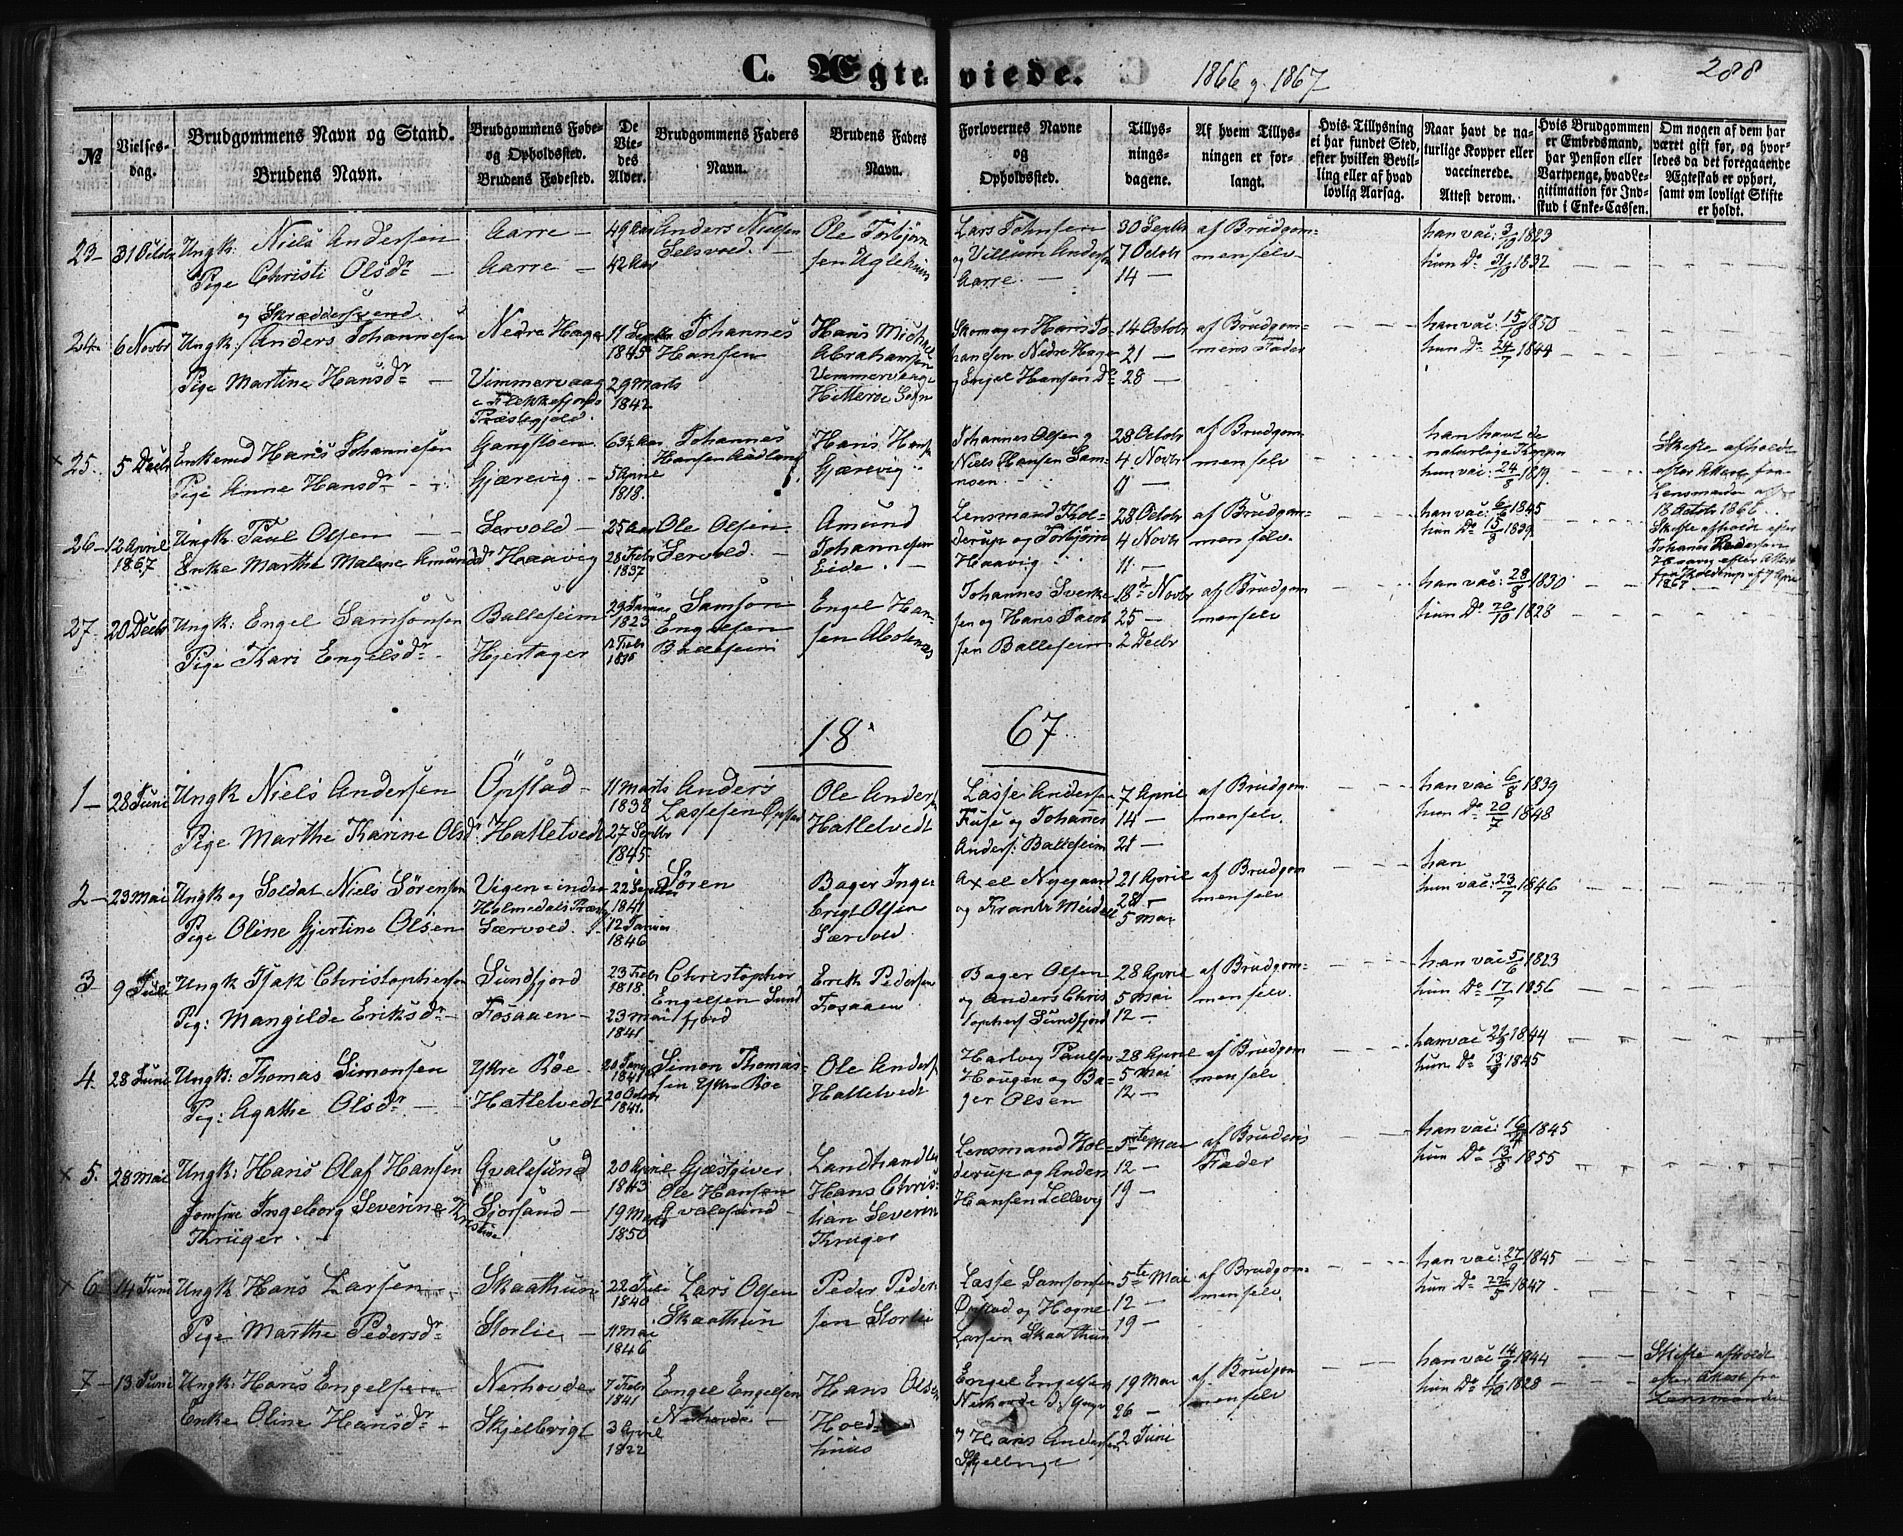 C. Ægteviede.
1866 g. 1867
288
№
Vielses-
dag.
Brudgommens Navn og Stand.
Brudens Navn.
Brudgommens Føde-
og Opholdssted.
Brudens Fødested.
De
Vie-
des
Alder.
Brudgommens Faders
Navn.
Brudens Faders
Navn.
Forlovernes Navne
og
Opholdssted.
Tillys-
nings-
dagene.
Af hvem Tillys-
ningen er for-
langt.
Hvis Tillysning
ei har fundet Sted,
efter hvilken Bevil-
ling eller af hvad
lovlig Aarsag.
Naar havt de na-
turlige Kopper eller
vaccinerede.
Attest derom.
Hvis Brudgommen
er Embedsmand,
har Pension eller
Vartpenge, hvad Le-
gitimation for Ind-
skud i Enke-Cassen.
Om nogen af dem har
været gift før, og hvor-
ledes da det foregaaende
Ægteskab er ophørt,
samt om lovligt Skifte
er holdt.
23 - 31 Octbr
Ungk: Niels Andersen
Pige Christi Olsdr -
Aarre -
Aarre -
49 Aar
42 Aar
Anders Nielsen
Selsvold. -
Ole Torbjørn
sen
Lars Johnsen
og Villum Anders
Aarre. -
30 Septbr
7 Octobr
14 -
af Brudgom-
men selv
han vac: 3/10 1823
hun Do 1832
24 - 6 Novbr
og Skræddersvend
Ungk: Anders Johannesen
Pige Martine Hansdr -
Nedre Hage
Vimmervaag
i Flekkefjords
Præstegjeld.
11 Septbr
1845
29 Marts
1842
Johannes
Hansen
Hans Michael
Abrahamsen
Vemmervaag
Hitterø Sogn
Skomager Hans Jo-
hansen Nedre Hage
og Engel Hansen Do
14 Octobr
21 -
28 -
af Brudgom-
mens Fader
han vac: 15/10 1850
hun Do 24/7 1844
× 25. 5 Decbr
Enkemd Hans Johannesen
Pige Anne Hansdr -
Gangstøen
Gjærevig. -
63½ Aar
5 Aprie
1818.
Johannes
Hansen
Hans Hans
Gjærevig.
Johannes Olsen g
Niels Hansen Sam-
nøen
28 Octobr
4 Novbr
11 -
af Brudgom-
men selv
han havt de
naturlige Kopper
hun vac: 24/8 1819.
Skifte afholdt
efter Attest fra
Lensmanden af
18 Octobr 1866.
26 - 12 April
1867
Ungk Paul Olsen -
Enke Marthe Malene Amundsd
Sørvold -
Haavig
25 Aar
28 Febr
1837
Ole Olsen
Sørvold. -
Amund
Johannesen
Eide. -
Lensmand Hol-
derup og Torbjørn
Haavig
28 Octobr
4 Novbr
11. -
af Brudgom-
men selv.
han vac: 6/6 1845
hun Do 15/8 1839
Skifte afholdt efter
Johannes Pedersen
Haavig efter Attest
fra Holderup af 7 April
1867
27. 20 Decbr
Ungk: Engel Samsonsen
Pige Kari Engelsdr -
Balleseim
Hjertager
29 Januar
1823
2 Febr
Samson
Engelsen
Balleseim
Engel Han-
sen
Johannes Sverke
sen og Hans Jacob
sen Balleseim
18de Novbr
25 -
2 Decbr
af Brudgom
men selv
han vac: 28/8 1830
hun Do 20/10 1828
1867
1 - 28 Juni
Ungk Niels Andersen
Pige Marthe Karine Olsdr
Opstad -
Hatletvedt
11 Marts
1838
27 Septbr
1845
Anders
Lassesen Opstad
Ole Anders
Hatletvedt
Lasse Andersen
Fuse og Johannes
Anders: Balleseim
7 April
14 -
21 -
af Brudgom
men selv.
han vac: 6/8 1839
hun Do 20/7 1848
2 - 23 Mai
Ungk og Soldat Niels Sørensen
Pige Oline Gjertine Olsen
Vigen i indre
Holmedals Præstg
Særvold.
22 Septbr
1841
12 Januar
1846
Søren
Bager Inge
Brigt Olsen
Særvold.
Axel Nyegaard
og Frantz Meidell
21 April
28 -
5 Mai
af Brudgom
men selv
han
hun vac: 23/7 1846
3 - 9 Juli
Ungk Isak Christophersen
Pig: Mangilde Eriksdr -
Sundfjord
Fosaaen -
23 Febr
1818.
23 Mai
1841.
Christopher
Engelsen Sund
fjord
Erik Pedersen
Fosaaen
Bager Olsen
og Anders Chris
tophers Sundfjord
28 April
5 Mai
12 -
af Brudgom-
men selv.
han vac 5/6 1823
hun Do 17/7 1856
4. 28 Juni
Ungk: Thomas Simonsen
Pig: Agathe Olsdr -
Ytre Røe
Hatletvedt
1841
20 Octobr
1841.
Simon Thomas-
sen Ytre Røe
Ole Anders
Hatletvedt
Hartvig Paulsen
Hougen og Ba-
ger Olsen
28 April
5 Mai
12 -
af Brudgom
men selv.
han vac 1844
hun Do 13/9 1845
× 5. 28 Mai
Ungk: Hans Olaf Hansen
Jomfrue Ingeborg Severine Kristine
Krüger. -
Qvalesund
Sjorsand -
20 Aprie
1843
19 Marts
1850
Gjæstgiver
Ole Hansen
Qvalesund -
Landhandler
Hans Chris-
tian Severin
Krüger
Lensmand Hol-
derup og Anders
Hansen Lillevig
5te Mai
12 -
19 -
af Brudens
Fader
han vac: 1845
hun Do 13/8 1855
× 6. 14 Juni
Ungk Hans Larsen -
Pige Marthe Pedersdr
Skaathun
Storlie -
22 Juli
1840
11 Mai
1846
Lars Olsen
Skaathun
Peder Peder
sen Storlie
Lasse Samsonsen
Opstad og Hogne
Larsen Skaathun
5te Mai
12 -
19 -
af Brudgom-
men selv.
han vac: 27/9 1845
hun Do 22/5 1847.
7 - 13 Juni
Ungk: Hans Engelsen -
Enke Oline Hansdr -
Nerhovde
Skjelbvigt
7 Febr
1841
3 April
1822
Engel Engelsen
Nerhovde -
Hans Olsen
Hoved-
huus
Engel Engelsen
Nerhovde
og Hans Andersen
Skjelbvigt
19 Mai
26 -
2 Juni
af Brudgom
men selv
han vac 14/9 1844
hun Do 1828
Skifte afholdt
efter Attest fra
Lensmanden